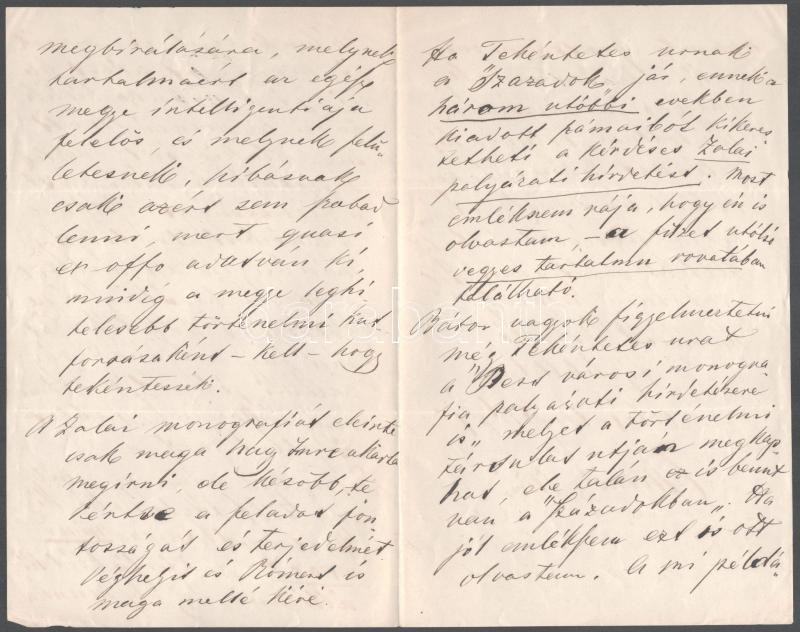 megbirálására, melynek
tartalmáért az egész
megye intelligentiája
felelős, és melynek felü-
letesnek, hibásnak
csak azért sem szabad
lenni, mert quasi
ex offo adatván ki,
mindig a megye leghi
telesebb történelmi kut
forrásaként – kell – hogy
tekintessék.
A Zalai monografiát eleinte
csak maga Nagy Imre akarta
megirni, de később, te
kintve a feladat fon
tosságát és terjedelmét
Véghelyit és Rómert is
maga mellé kéré.
Ha Tekéntetes urnak
a "Századok" jár, ennek a
három utóbbi években
kiadott számaiból kikeres
tetheti a kérdéses Zalai
pályázati hirdetést. Most
emlékszem rája, hogy én is
olvastam, – a füzet utolsó
vegyes tartalmu rovatában
található.
Bátor vagyok figyelmeztetni
még Tekéntetes urat
a "Pest városi monogra
fia pályázati hirdetésére
is" melyet a történelmi
társulat utján megkap
hat, de talán ez is bennt
van a "Századokban". Ha
jól emlékszem ezt is ott
olvastam. A mi példá-
darabanth.com